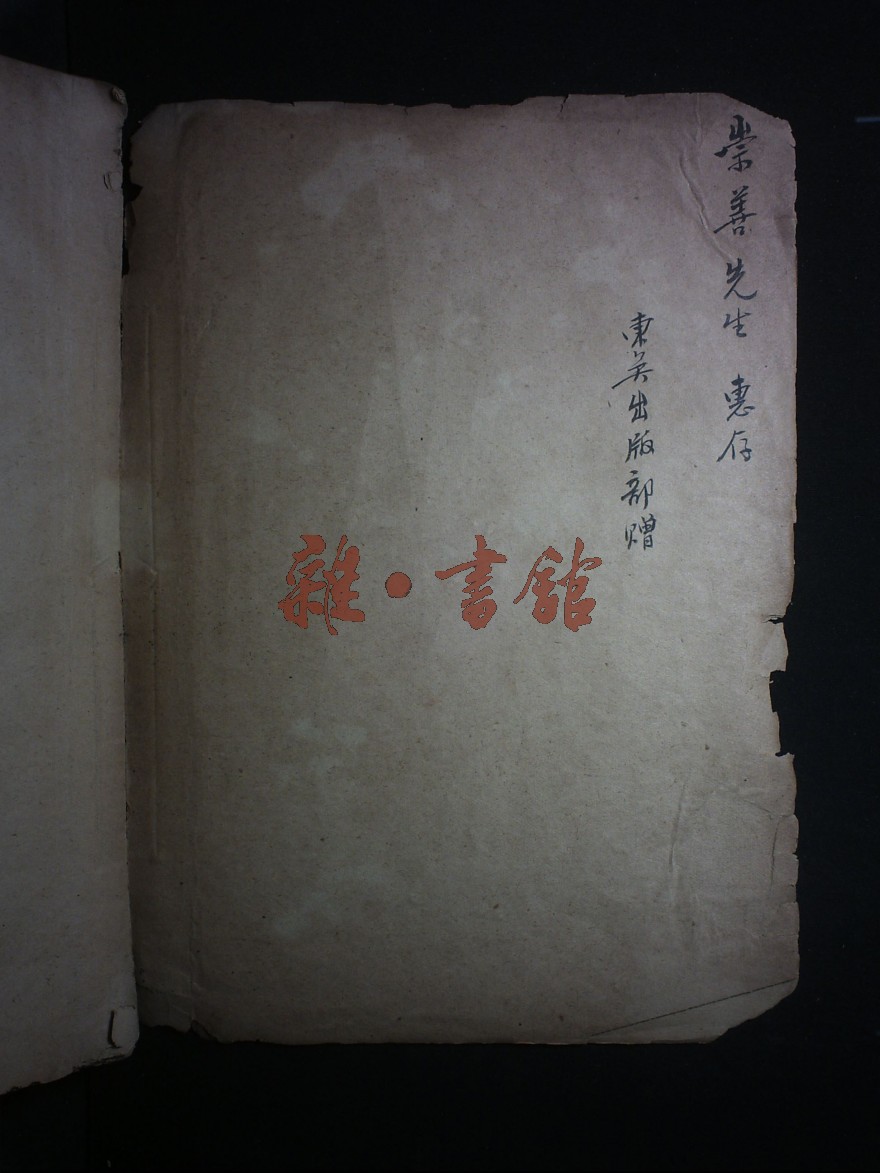 崇善先生 惠存
東吳出版部赠
雜·書館